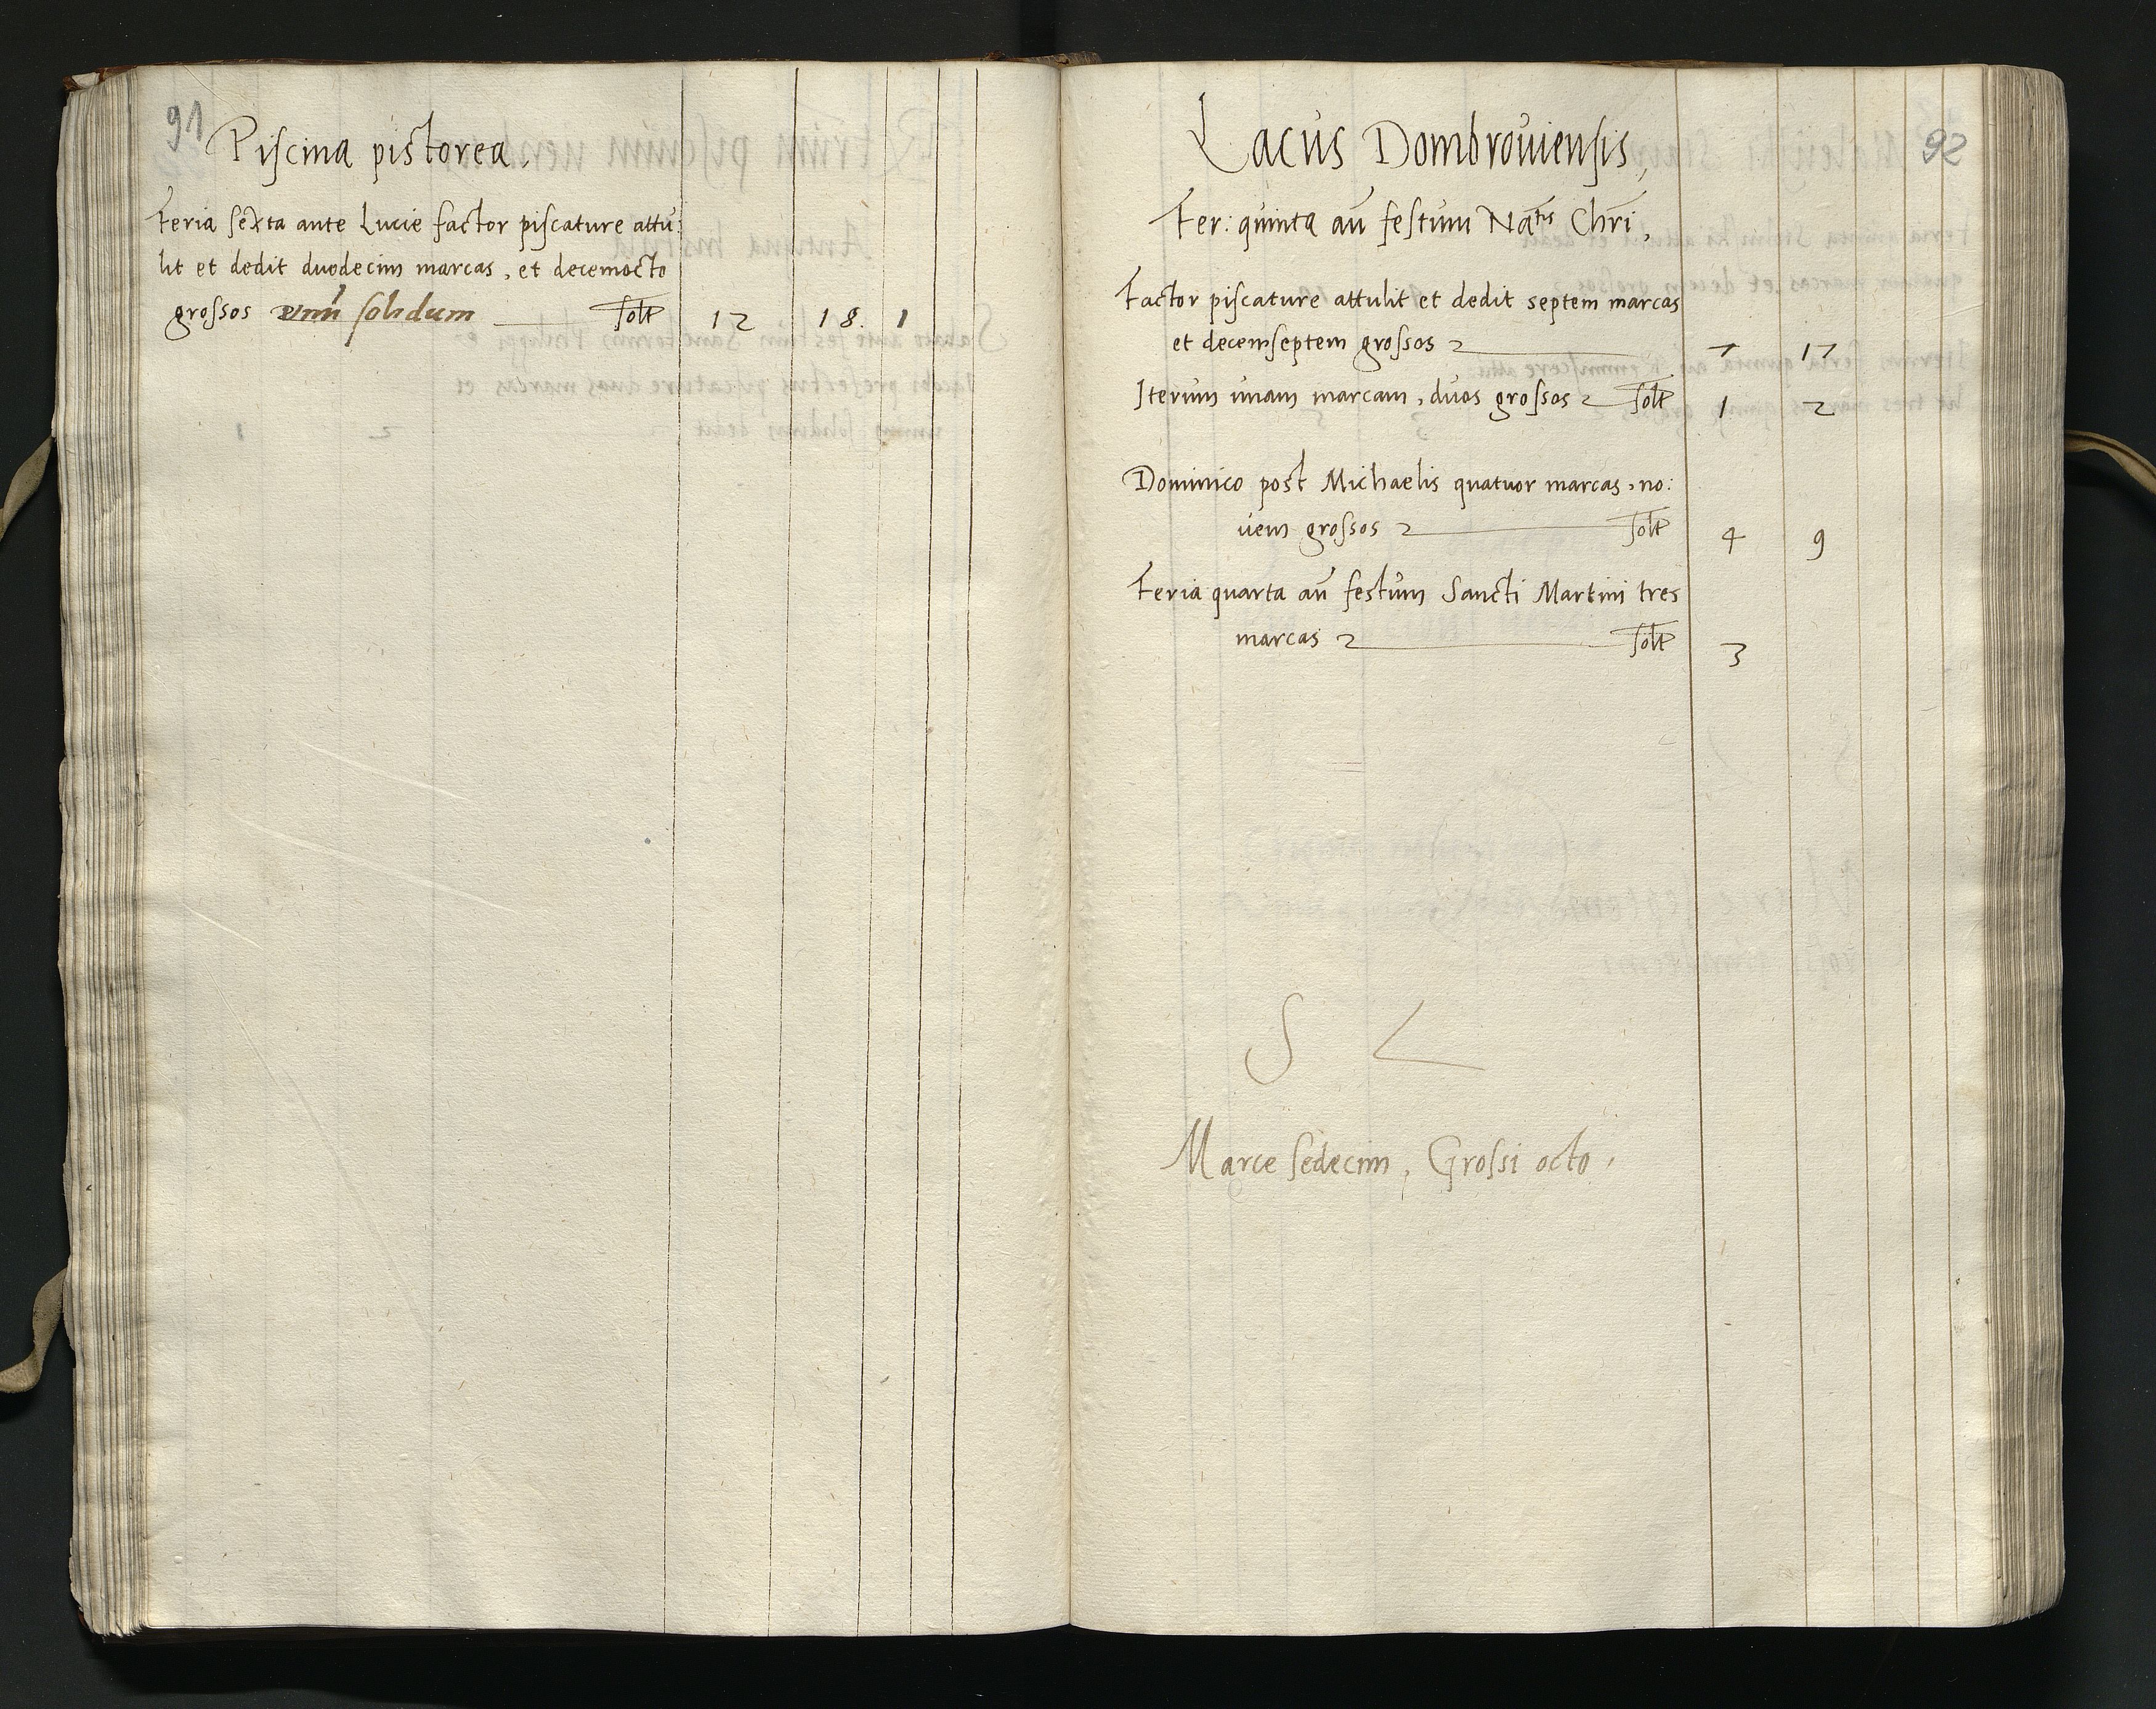 91
Piscina pistorea.
Feria sexta ante Lucie factor piscature attu:
lit et dedit duodecim marcas, et decemocto
grossos unū solidum solt 12 18. 1
92
Lacus Dombrouiensis,
Fer: quinta añ festum Natis Chri,
Factor piscature attulit et dedit septem marcas
et decemseptem grossos 7 17
Iterum unam marcam, duos grossos solt 1 2
Dominico post Michaelis quatuor marcas, no:
uem grossos solt 4 9
Feria quarta añ festum Sancti Martini tres
marcas solt 3
S L
Marce sedecim, Grossi octo,